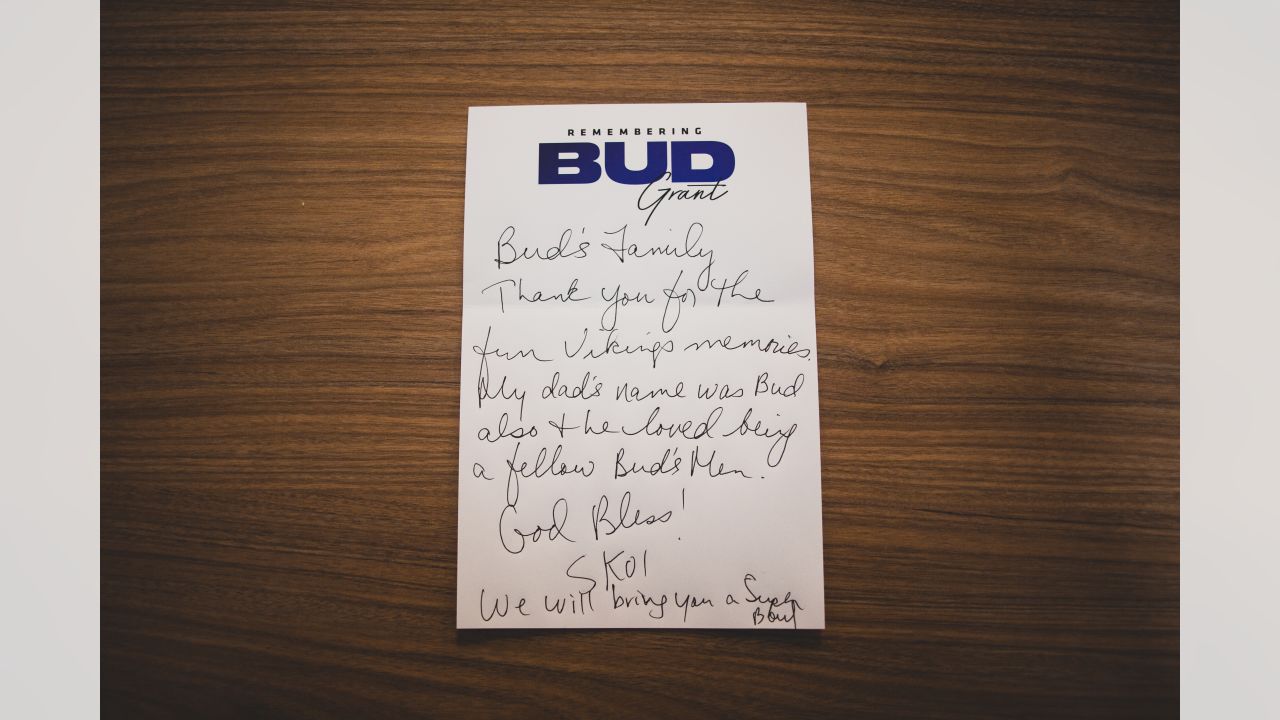 REMEMBERING
BUD
Grant
Bud's Family
Thank you for the
fun Vikings memories.
My dad's name was Bud
also & he loved being
a fellow Bud's Men.
God Bless!
SKOl
We will bring you a Super
Bowl